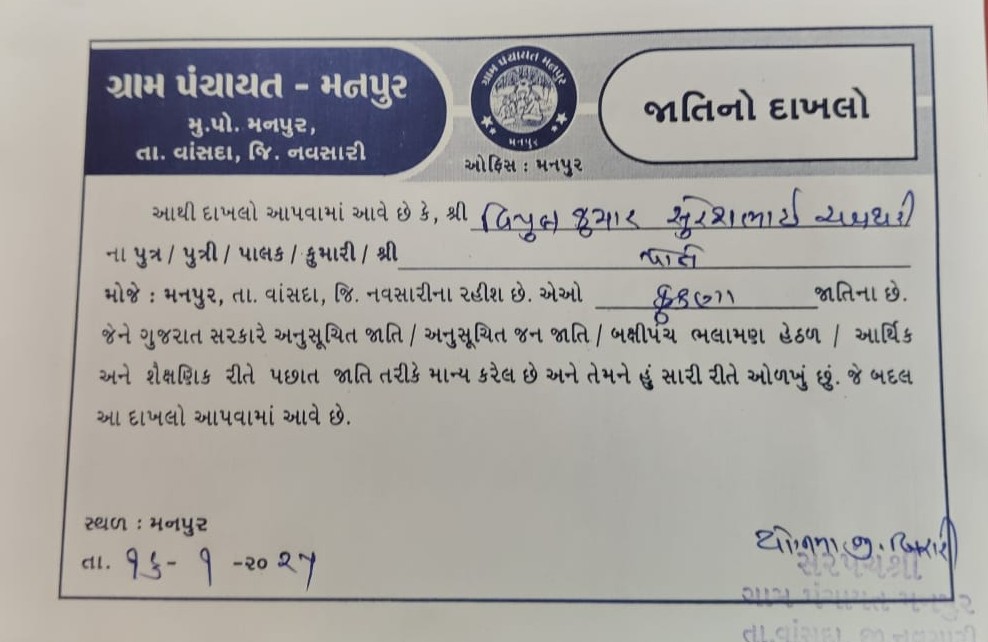 ગ્રામ પંચાયત - મનપુર
મુ.પો. મનપુર,
તા. વાંસદા, જિ. નવસારી
ગ્રામ પંચાયત મનપુર
મનપુર
ઓફિસ : મનપુર
જાતિનો દાખલો
આથી દાખલો આપવામાં આવે છે કે, શ્રી વિપુલ કુમાર સુરેશભાઈ
ના પુત્ર / પુત્રી / પાલક / કુમારી / શ્રી પોતે
મોજે : મનપુર, તા. વાંસદા, જિ. નવસારીના રહીશ છે. એઓ કુકણા જાતિના છે.
જેને ગુજરાત સરકારે અનુસૂચિત જાતિ / અનુસૂચિત જન જાતિ / બક્ષીપંચ ભલામણ હેઠળ / આર્થિક
અને શૈક્ષણિક રીતે પછાત જાતિ તરીકે માન્ય કરેલ છે અને તેમને હું સારી રીતે ઓળખું છું. જે બદલ
આ દાખલો આપવામાં આવે છે.
સ્થળ : મનપુર
તા. ૧૬- ૧ -૨૦૨૫
સરપંચશ્રી
ગ્રામ પંચાયત મનપુર
તા.વાંસદા જી.નવસારી